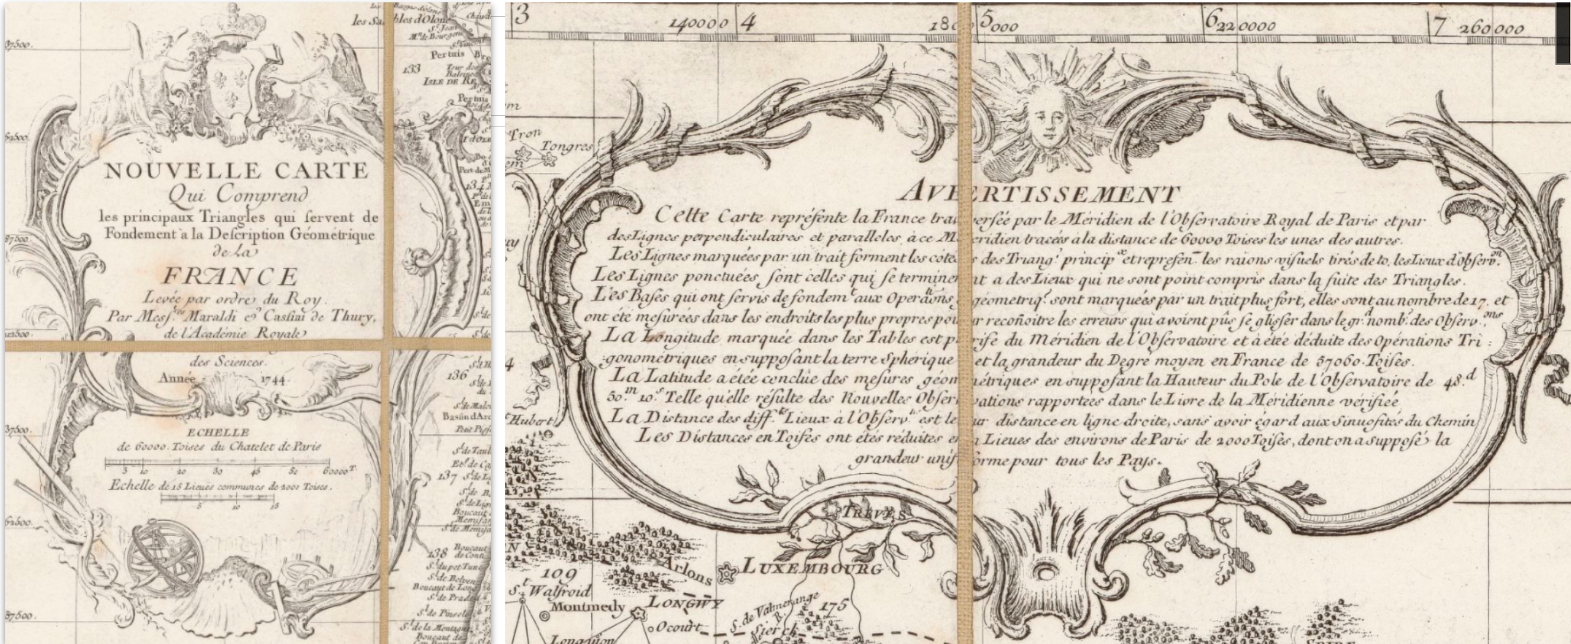 NOUVELLE CARTE
Qui Comprend
les principaux Triangles qui servent de
Fondement a la Description Géometrique
de la
FRANCE
Levée par ordre du Roy.
Par Mess.rs Maraldi & Cassini de Thury,
de l'Académie Royale
des Sciences.
Année 1744.
ECHELLE
de 60000 Toises du Chatelet de Paris
5 10 20 30 40 50 60000T
Echelle de 15 Lieues communes de 2000 Toises.
5 10 15
les Sables d'Olone
Pertuis
133
ISLE DE RE
Pertuis
136
137
138
3 140000 4 180000 5 6 220000 7 260000
Tongres
AVERTISSEMENT
Cette Carte représente la France traversée par le Méridien de l'Observatoire Royal de Paris et par
des Lignes perpendiculaires et paralleles à ce Méridien tracées à la distance de 60000 Toises les unes des autres.
Les Lignes marquées par un trait forment les cotés des Triang.s princip.x et represen.t les raions visuels tirés de to. les Lieux d'observ.on
Les Lignes ponctuées, sont celles qui se terminent a des Lieux qui ne sont point compris dans la suite des Triangles.
Les Bases qui ont servis de fondem.t aux Operãons géometriq.s sont marquées par un trait plus fort, elles sont au nombre de 17. et
ont été mesurées dans les endroits les plus propres pour reconoitre les erreurs qui avoient pûs se glisser dans le gr. nomb. des Observ.ons
La Longitude marquée dans les Tables est prise du Méridien de l'Observatoire et à étée déduite des Opérations Tri:
gonométriques en supposant la terre Spherique et la grandeur du Degré moyen en France de 57060. Toises.
La Latitude a étée conclüe des mesures géométriques en supposant la Hauteur du Pole de l'Observatoire de 48.d
50.m 10.s Telle qu'elle résulte des Nouvelles Observations rapportées dans le Livre de la Méridienne vérifiée
La Distance des diff.ts Lieux à l'Observ.re est leur distance en ligne droite, sans avoir égard aux Sinuosités du Chemin
Les Distances en Toises ont étés réduites en Lieues des environs de Paris de 2000 Toises, dont on a supposé la
grandeur uniforme pour tous les Pays.
S.t Hubert
TREVES
Arlons LUXEMBOURG
109
S. Walfroid
Montmedy LONGWY
Ocourt
S. de Valmerange 175
Sierck
Longuion